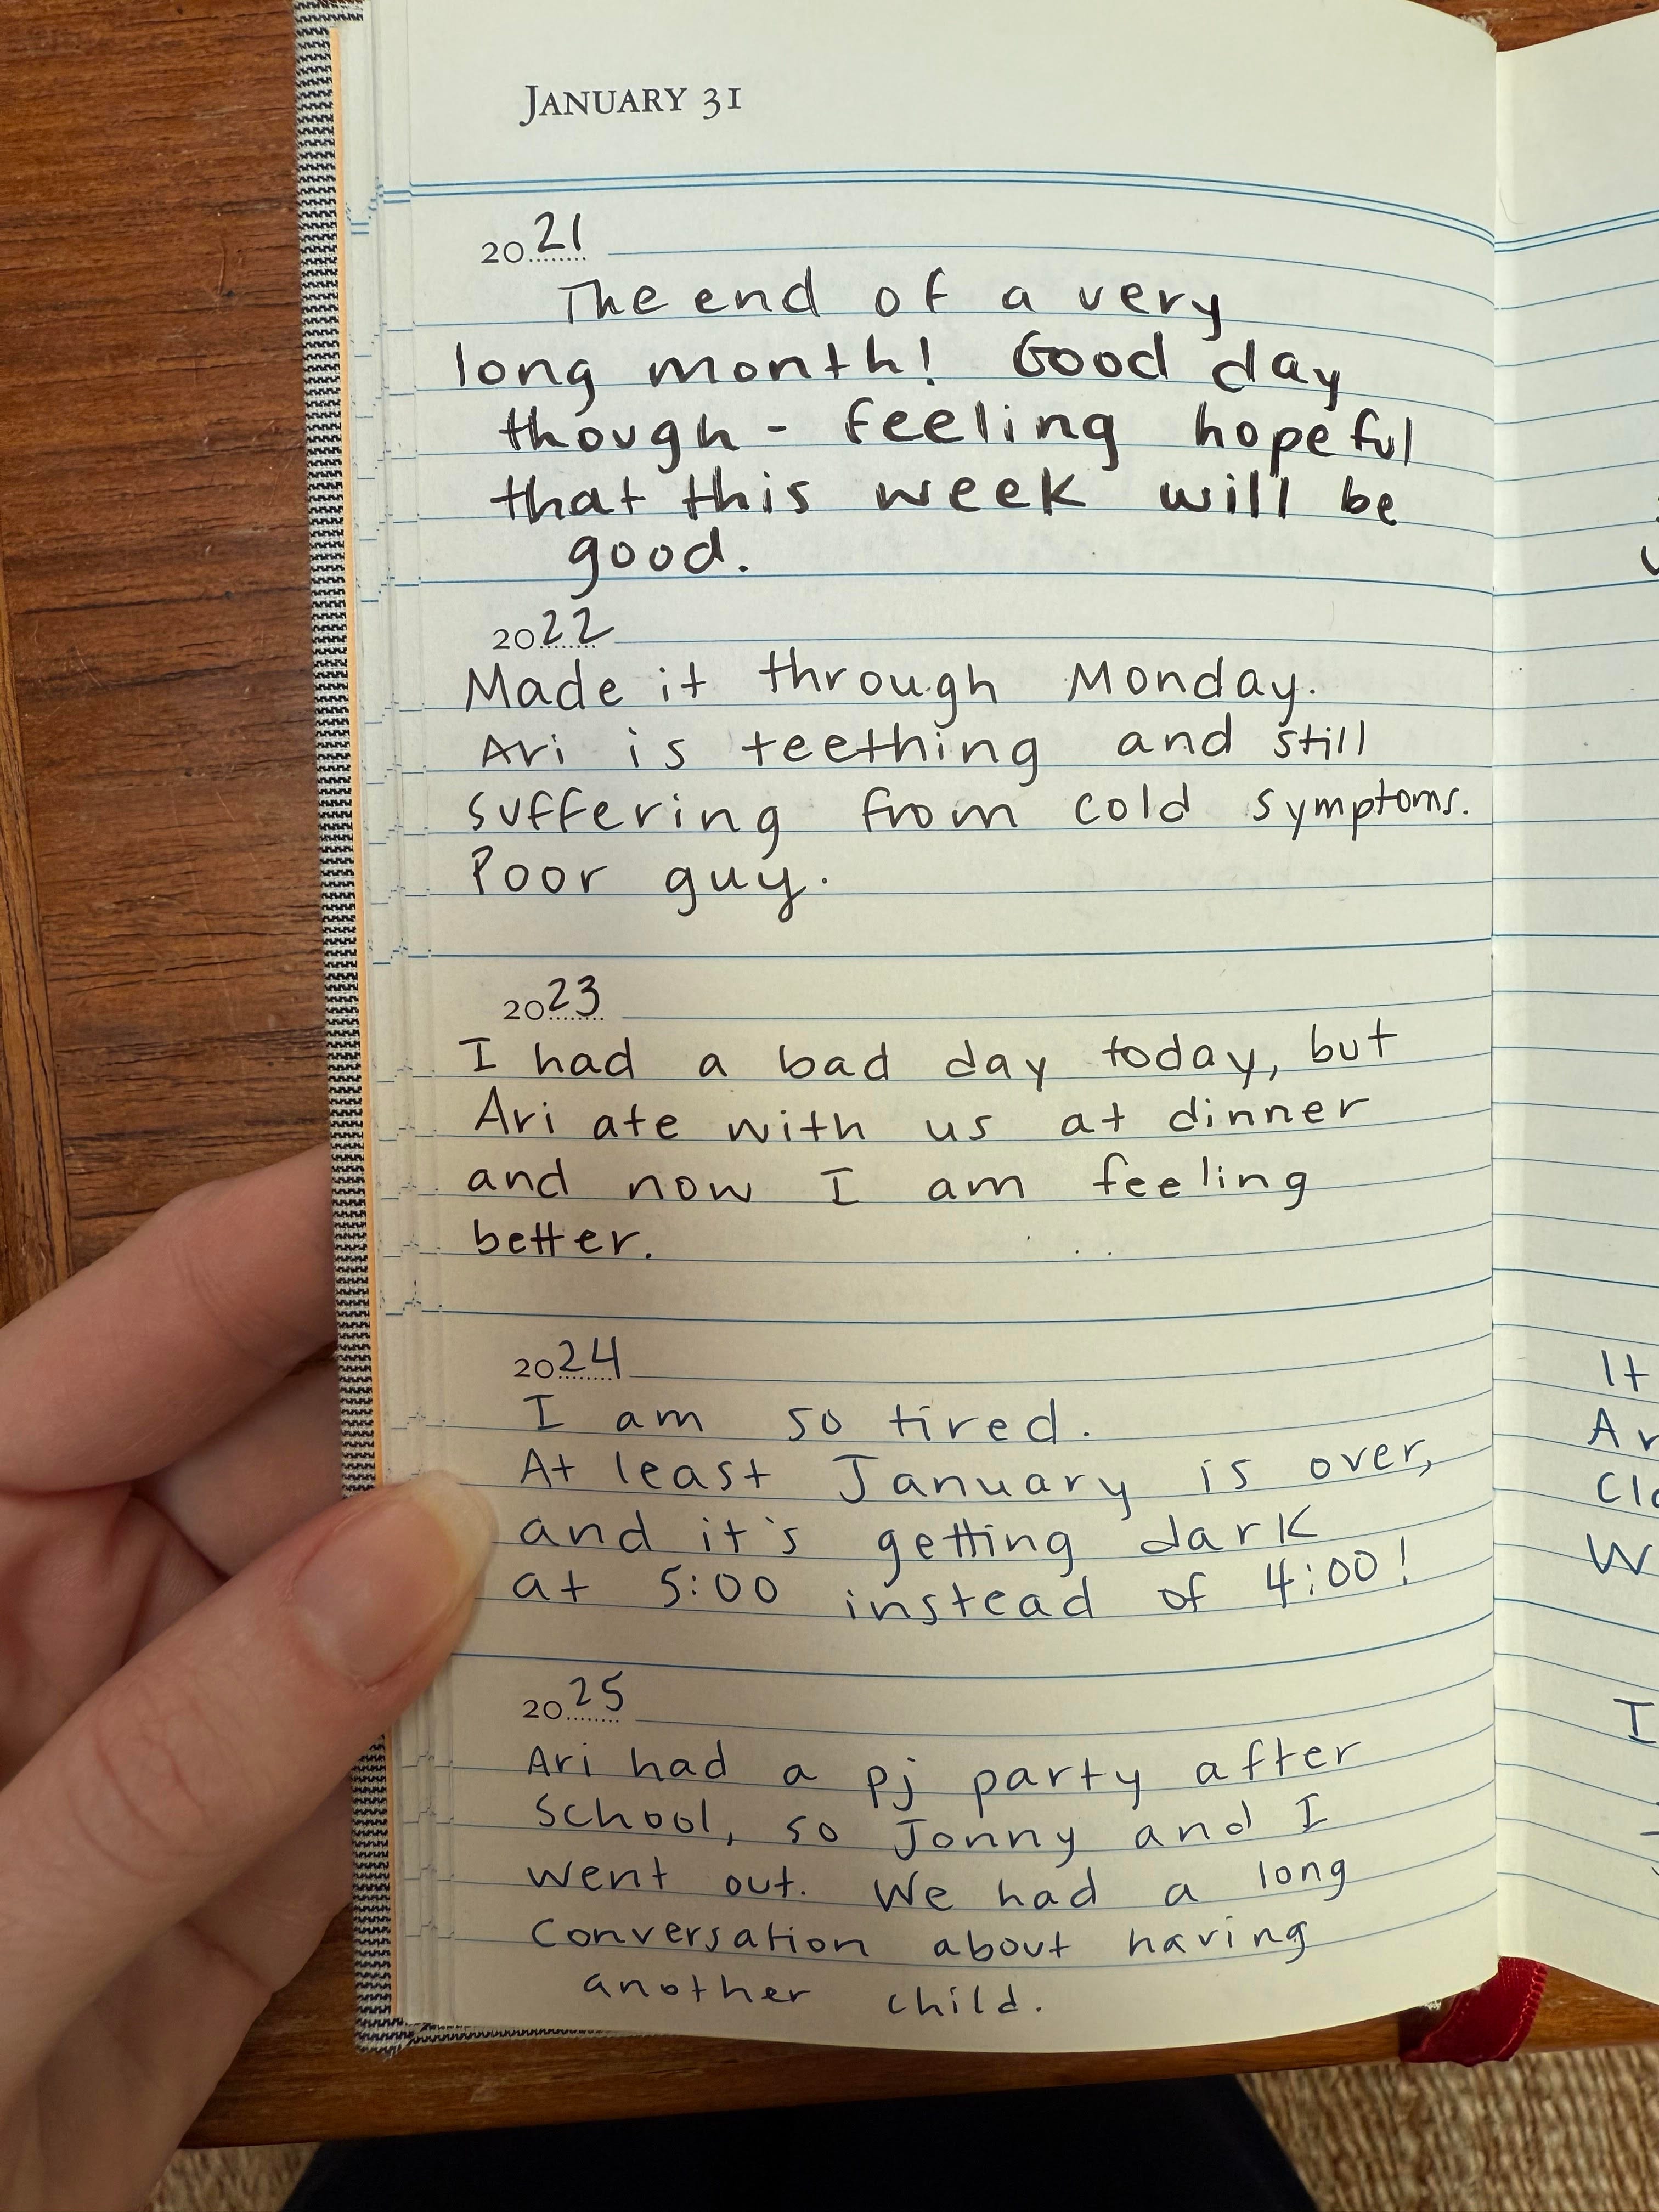 JANUARY 31
2021
The end of a very
long month! Good day
though - feeling hopeful
that this week will be
good.
2022
Made it through Monday.
Ari is teething and still
suffering from cold symptoms.
Poor guy.
2023
I had a bad day today, but
Ari ate with us at dinner
and now I am feeling
better.
2024
I am so tired.
At least January is over,
and it's getting dark
at 5:00 instead of 4:00!
2025
Ari had a pj party after
school, so Jonny and I
went out. We had a long
conversation about having
another child.
It
I